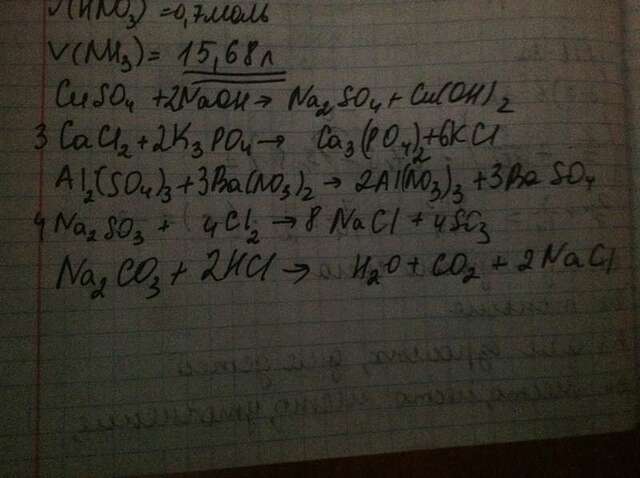 ν(HNO₃) = 0,7 моль
V(NH₃) = 15,68 л
CuSO₄ + 2NaOH → Na₂SO₄ + Cu(OH)₂
3 CaCl₂ + 2K₃PO₄ → Ca₃(PO₄)₂ + 6KCl
Al₂(SO₄)₃ + 3Ba(NO₃)₂ → 2Al(NO₃)₃ + 3BaSO₄
4 Na₂SO₃ + 4Cl₂ → 8 NaCl + 4SO₃
Na₂CO₃ + 2HCl → H₂O + CO₂ + 2NaCl